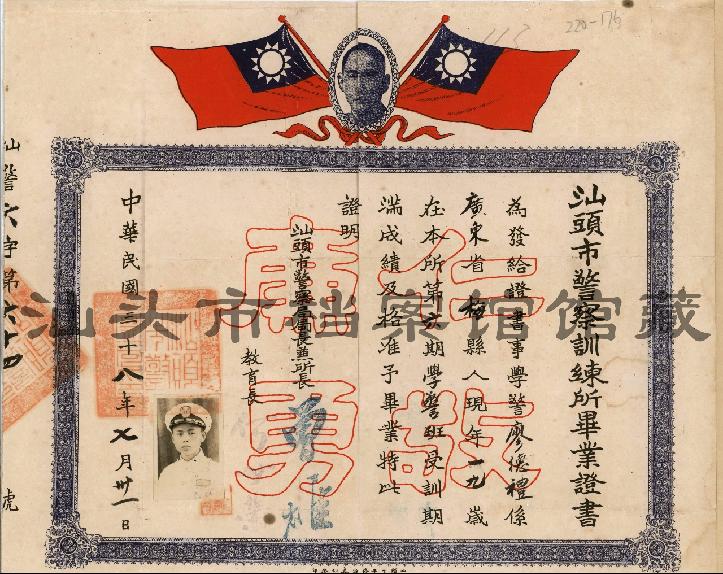 汕頭市警察訓練所畢業證書
為發給證書事學警廖德禮係
廣東省梅縣人現年一九歲
在本所第六期學警班受訓期
滿成績及格准予畢業特此
證明
汕頭市警察局局長兼所長
教育長
中華民國三十八年七月卅一日
汕警六字第六十四
號
仁誠
廉勇
汕头市档案馆馆藏
220-176